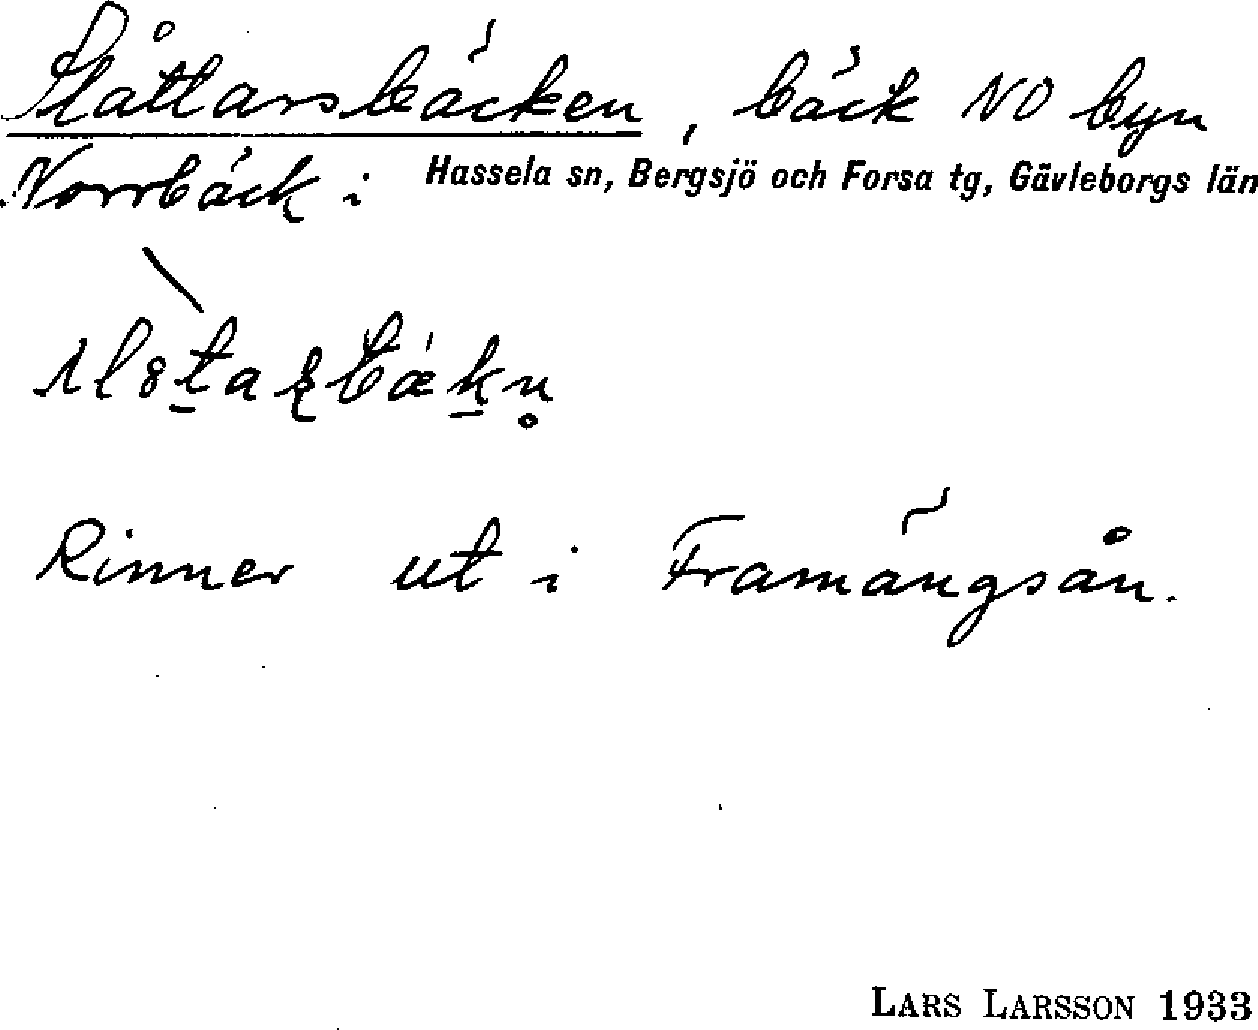 Slåttarsbäcken, bäck NO byn
Norrbäck i Hassela sn, Bergsjö och Forsa tg, Gävleborgs län
Rinner ut i Framängsån.
LARS LARSSON 1933